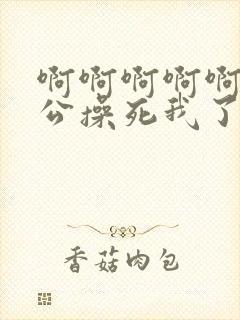 啊啊啊啊啊
公操死我了
香菇肉包